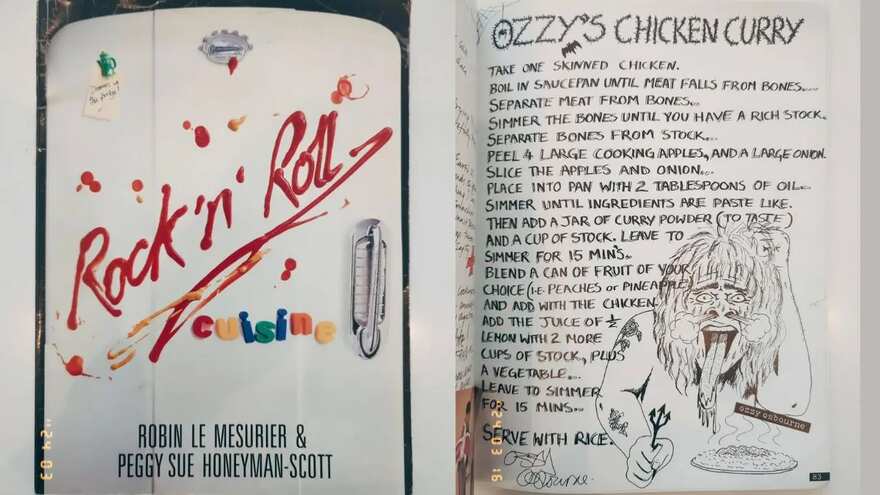 Rock 'n' Roll
cuisine
ROBIN LE MESURIER &
PEGGY SUE HONEYMAN-SCOTT
OZZY'S CHICKEN CURRY
TAKE ONE SKINNED CHICKEN.
BOIL IN SAUCEPAN UNTIL MEAT FALLS FROM BONES....
SEPARATE MEAT FROM BONES...
SIMMER THE BONES UNTIL YOU HAVE A RICH STOCK.
SEPARATE BONES FROM STOCK...
PEEL 4 LARGE COOKING APPLES, AND A LARGE ONION.
SLICE THE APPLES AND ONION...
PLACE INTO PAN WITH 2 TABLESPOONS OF OIL...
SIMMER UNTIL INGREDIENTS ARE PASTE LIKE.
THEN ADD A JAR OF CURRY POWDER (TO TASTE)
AND A CUP OF STOCK. LEAVE TO
SIMMER FOR 15 MINS.
BLEND A CAN OF FRUIT OF YOUR
CHOICE (I.E. PEACHES OR PINEAPPLE
AND ADD WITH THE CHICKEN.
ADD THE JUICE OF ½
LEMON WITH 2 MORE
CUPS OF STOCK, PLUS
A VEGETABLE...
LEAVE TO SIMMER
FOR 15 MINS...
SERVE WITH RICE.
Ozzy
Osbourne.
ozzy osbourne
83